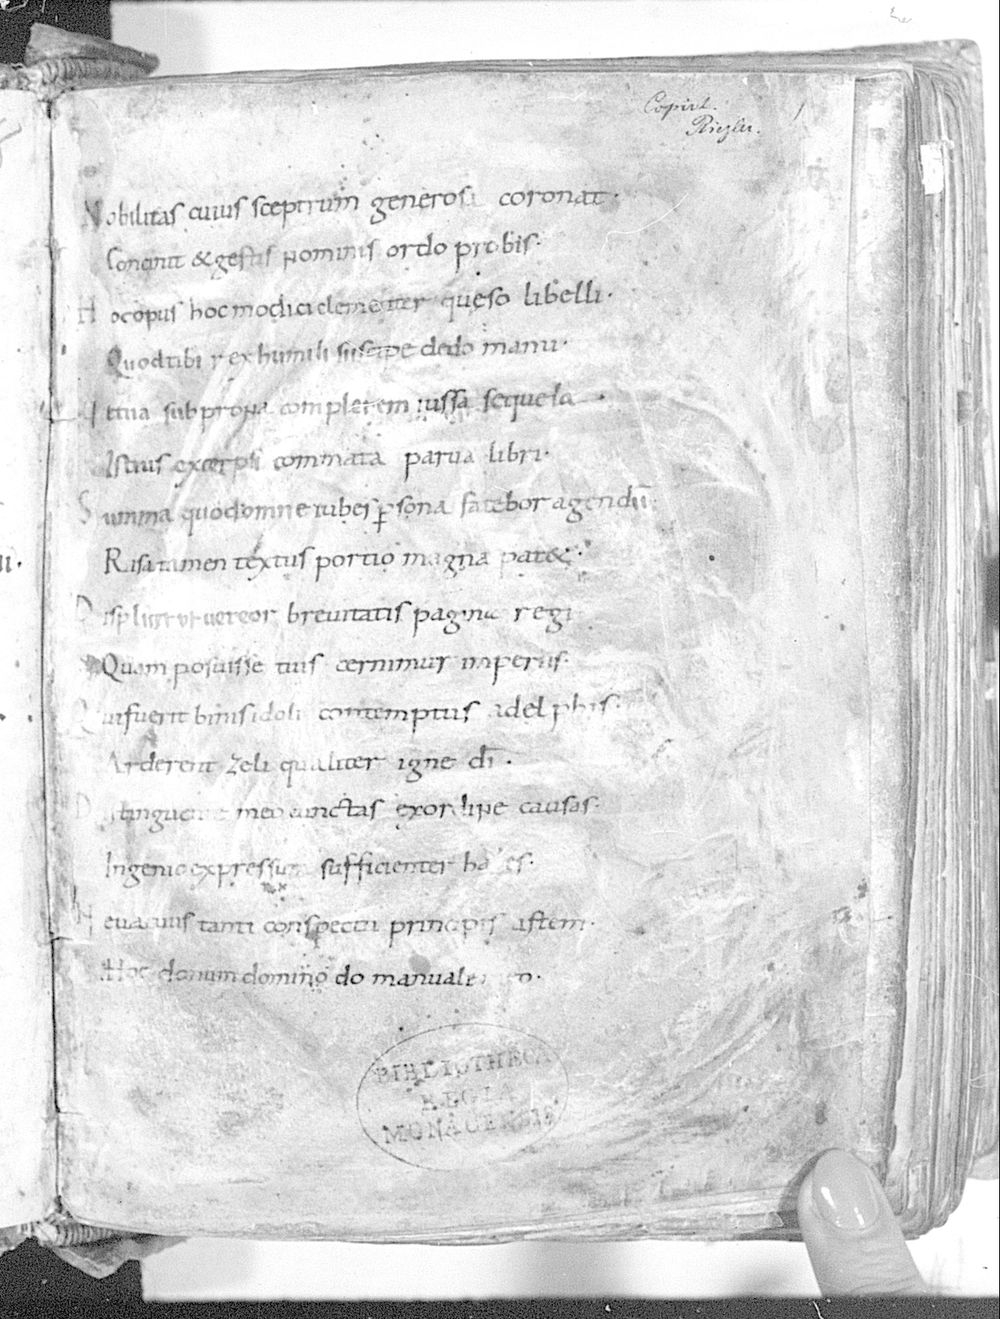 Copirt.
Riezler.
1
Nobilitas cuius sceptrum generosa coronat·
Concinit & gestis nominis ordo probis·
Hoc opus hoc modici clementer queso libelli·
Quod tibi rex humili suscipe dedo manu·
Ut tua sub prona complerem iussa sequela·
Istius excerpsi commata parua libri·
Summa quod omne iubes psona fatebor agendū·
Risi tamen textus portio magna pat&·
Displicet ut uereor breuitatis pagina regi
Quam posuisse tuis cernimur imperiis·
Qui fuerit binis idoli contemptus adelphis·
Arderent zeli qualiter igne dī·
Distinguere meo cunctas exordine causas·
Ingenio expressum sufficienter habes·
Ne uacuus tanti conspectu principis astem·
Hoc donum domino do manuale
BIBLIOTHECA
REGIA
MONACENSIS